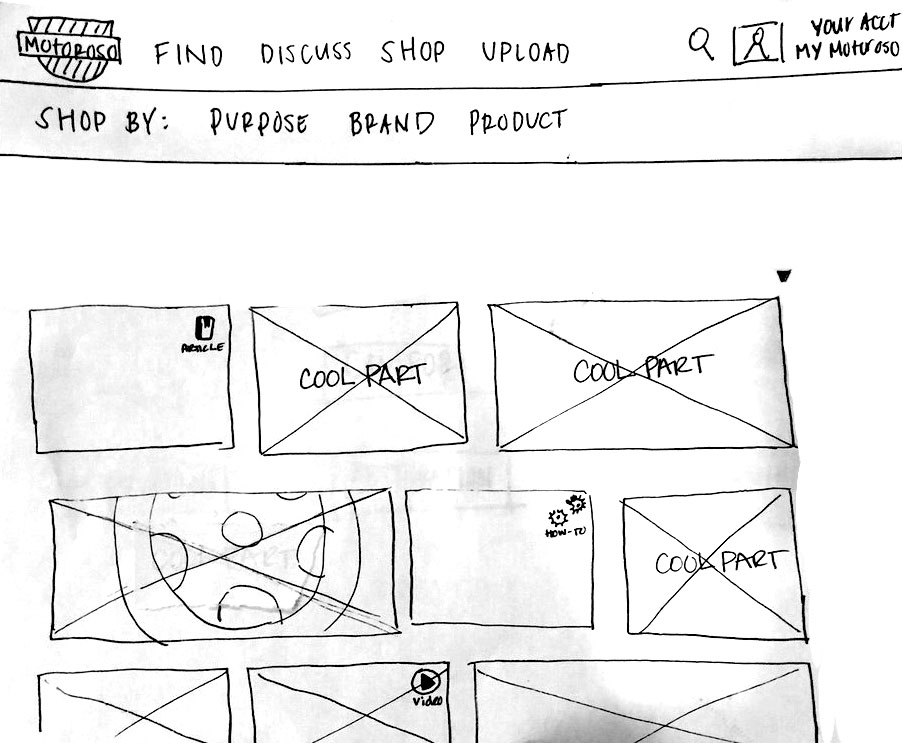 MOTOROSO FIND DISCUSS SHOP UPLOAD
YOUR ACCT
MY MOTOROSO
SHOP BY: PURPOSE BRAND PRODUCT
ARTICLE
COOL PART
COOL PART
HOW-TO
COOL PART
Video